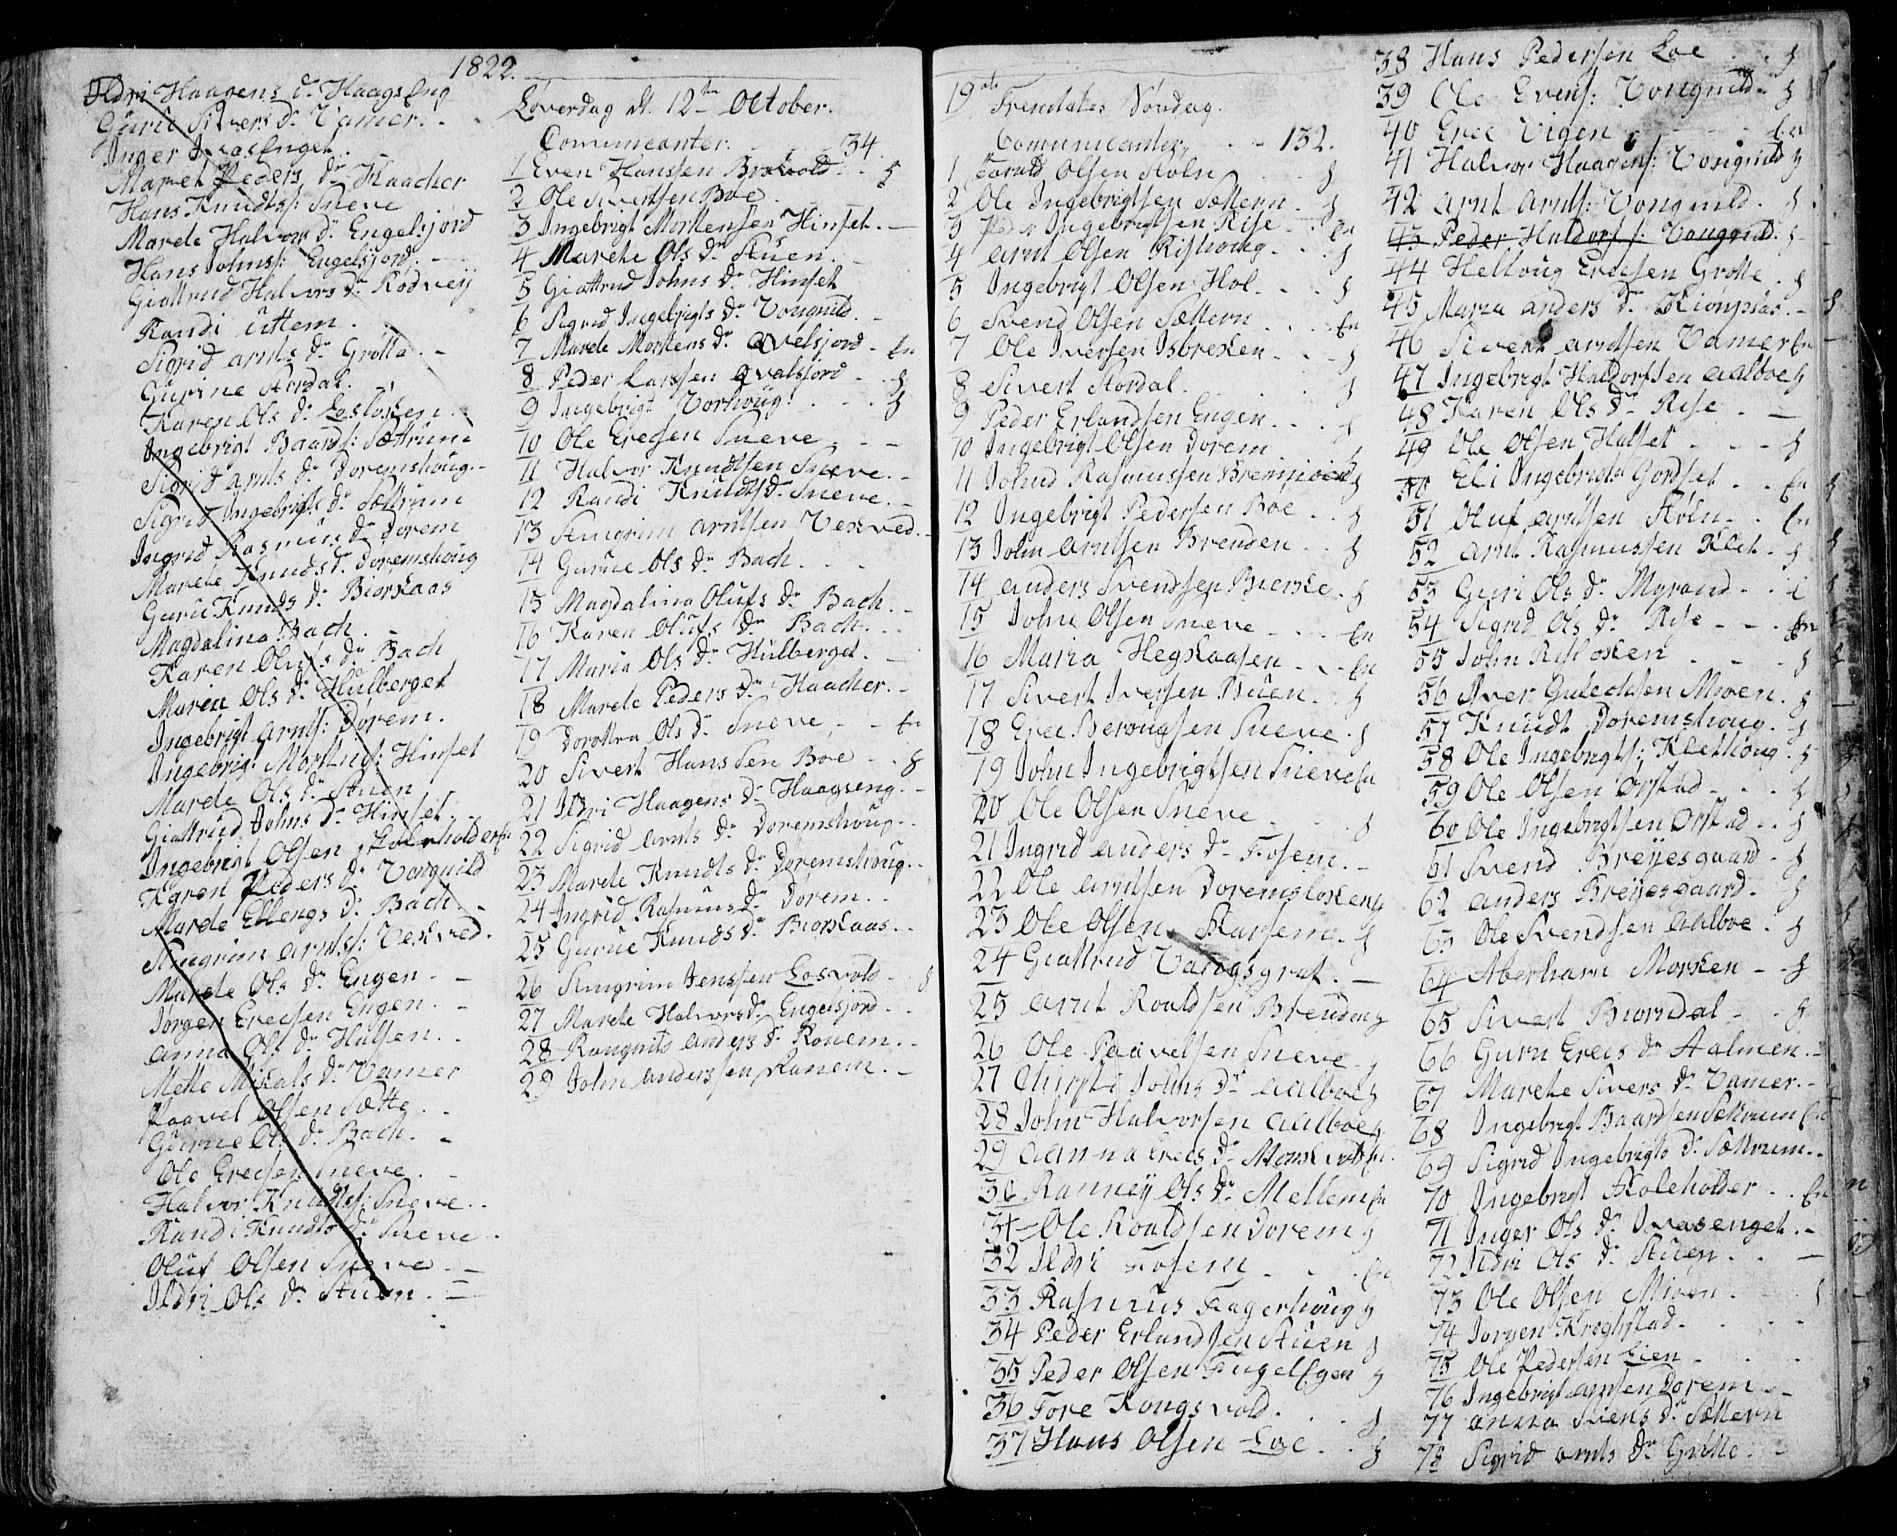 1822.
Ildri Haagens Dr Haagseng
Gurie Sivers Dr Vamer.
Inger Ivasenget.
Maret Peders Dr Haacher
Hans Knudts: Sneve
Marete Halvors Dr Engelsjord
Hans Johns: Engelsjord.
Giøttrud Halvors Dr Rodveij
Randi Uttem.
Sigrid Arnts Dr Grotta.
Gurine Stordal.
Karen Ols Dr Losløsken
Ingebrigt Baards: Sættrum
Sigrid Arnts Dr Doremshoug.
Sigrid Ingebrigts Dr Sættrum
Ingrid Rasmus Dr Dorem
Marete Knuds Dr Doremshoug
Gurie Knuds Dr Biorkaas
Magdalina Bach.
Karen Olufs Dr Bach
Maren Ols Dr Hulberget
Ingebrigt Arnts: Dorem.
Ingebrigt Mortens: Hinset
Marete Ols Dr Stuen
Giøttrud Johns Dr Hinset.
Ingebrigt Olsen Skoleholder
Karen Peders Dr Vongnild
Marete Ellengs Dr Bach.
Stengrim Arnts: Vekved.
Marete Ols Dr Engen.
Jørgen Erecsen Engen.
Anna Ols Dr Hulsen.
Mette Mikals Dr Vamer
Paavel Olsen Sætte.
Gurue Ols Dr Bach.
Ole Erecsen Sneve.
Halvor Knudts: Sneve.
Randi Knudts Dr Sneve.
Oluf Olsen Sneve.
Ildri Ols Dr Stuen.
Løverdag d. 12te October.
Comunicanter. 34.
1 Even Hanssen Brovold. §
2 Ole Sivertsen Boe.
3 Ingebrigt Mortensen Hinset.
4 Marete Ols Dr Stuen.
5 Giøttrud Johns Dr Hinset
6 Sigrid Ingebrigts Dr Vongnild.
7 Marete Mortens Dr Qvelsjord. En
8 Peder Larssen Qvelsjord. §
9 Ingebrigt Vorhoug. §
10 Ole Erecsen Sneve.
11 Halvor Knudtsen Sneve.
12 Randi Knudts Dr Sneve.
13 Stengrim Arntsen Vekved.
14 Gurue Ols Dr Bach.
15 Magdalina Olufs Dr Bach.
16 Karen Olufs Dr Bach.
17 Maria Ols Dr Hulberget.
18 Marete Peders Dr Haacher.
19 Dorothea Ols Dr Sneve. En
20 Sivert Hanssen Boe. §
21 Ildri Haagens Dr Haagseng.
22 Sigrid Arnts Dr Doremshoug.
23 Marete Knudts Dr Doremshoug.
24 Ingrid Rasmus Dr Dorem.
25 Gurue Knuds Dr Biorkaas.
26 Stengrim Jenssen Losvold. §
27 Marete Halvors Dr Engelsjord.
28 Rangnild Anders Dr Ronem.
29 John Anderssen Ranem.
19de Trenitates Søndag.
Communicanter. 132.
1 Harald Olsen Holn. §
2 Ole Ingebrigtsen Sættern. §
3 Peder Ingebrigtsen Rise. En
4 Arnt Olsen Risthoug. §
5 Ingebrigt Olsen Hol. §
6 Svend Olsen Sættern. En
7 Ole Iversen Isbreken. §
8 Sivert Stordal. §
9 Peder Erlandsen Engen. §
10 Ingebrigt Olsen Dorem. §
11 Johnd Rasmussen §
12 Ingebrigt Pedersen Boe. §
13 John Arntsen Brenden. §
14 Anders Svendsen Bierke. §
15 John Olsen Sneve. En
16 Maria Hegkaasen. En
17 Sivert Iversen Stuen. §
18 Erec Berougsen Sneve. §
19 John Ingebrigtsen Sneve En
20 Ole Olsen Sneve. §
21 Ingrid Anders Dr Fosem.
22 Ole Arntsen Doremsløkken §
23 Ole Olsen Karsem. §
24 Giøttrud Vangsgraf.
25 Arnt Roaldsen Brenden §
26 Ole Paavelsen Sneve. §
27 Christi Johns Dr Aalboe §
28 John Halvorsen Aalboe §
29 Anna Erecs Dr En
30 Ranney Ols Dr Mellem En
31 Ole Roaldsen Dorem §
32 Ildri Fosem. En
33 Rasmus Fagerhoug §
34 Peder Erlandsen Stuen §
35 Peder Olsen Fugelsgen §
36 Tore Kongsvold. §
37 Hans Olsen Loe. §
38 Hans Pedersen Loe §
39 Ole Evens: Vongnild. §
40 Erec Vigen En
41 Halvor Haagens: Vongnild §
42 Arnt Arnts: Vongnild. §
43 Peder Haldors: Vongnild. §
44 Hellvug Erecsen Grotte. §
45 Maria Anders Dr Kionplas.
46 Sivert Arntsen Vamer En
47 Ingebrigt Haldorssen Aalboe §
48 Karen Ols Dr Rise.
49 Ole Olsen Hulset. §
50 Eli Ingebrigts Gordset. En
51 Oluf Arntsen Holn. En
52 Arnt Rasmussen Klet. §
53 Guri Ols Dr Myrand.
54 Sigrid Ols Dr Rise. En
55 John Risløken. §
56 Iver Gulecksen Moen. §
57 Knudt Doremshoug. §
58 Ole Ingebrigts: Klethoug. §
59 Ole Olsen Orstad. §
60 Ole Ingebrigtsen Orstad. §
61 Svend Breijesgaard. §
62 Anders Breijesgaard. §
63 Ole Svendsen Aalboe. §
64 Aberham Morken. §
65 Sivert Biorndal. §
66 Guru Erecs Dr Aalmen.
67 Marete Sivers Dr Vamer.
68 Ingebrigt Baardsen Setrum En
69 Sigrid Ingebrigts Dr Sættrum.
70 Ingebrigt Skoleholder. En
71 Inger Ols Dr Ivasenget.
72 Ildri Ols Dr Stuen.
73 Ole Olsen Mioen.
74 Jorgen Kroghstad.
75 Ole Pedersen Lien.
76 Ingebrigt Arntsen Dorem.
77 Anna Svens Dr Sættern
78 Sigrid Arnts Dr Grotte.